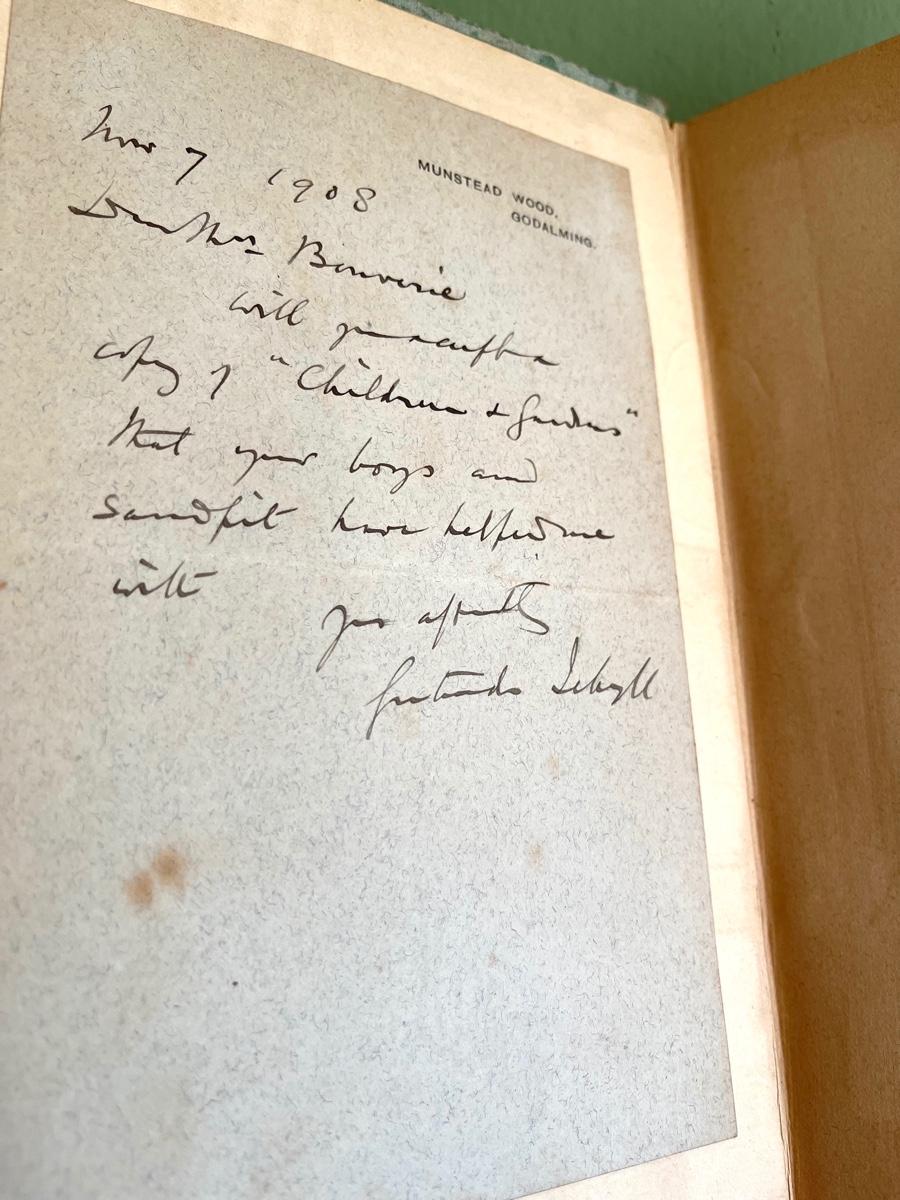 MUNSTEAD WOOD,
GODALMING.
Nov 7 1908
Dear Mrs Bouverie
will you accept a
copy of "Children & Gardens"
that your boys and
sandpit have helped me
with
yrs affectly
Gertrude Jekyll